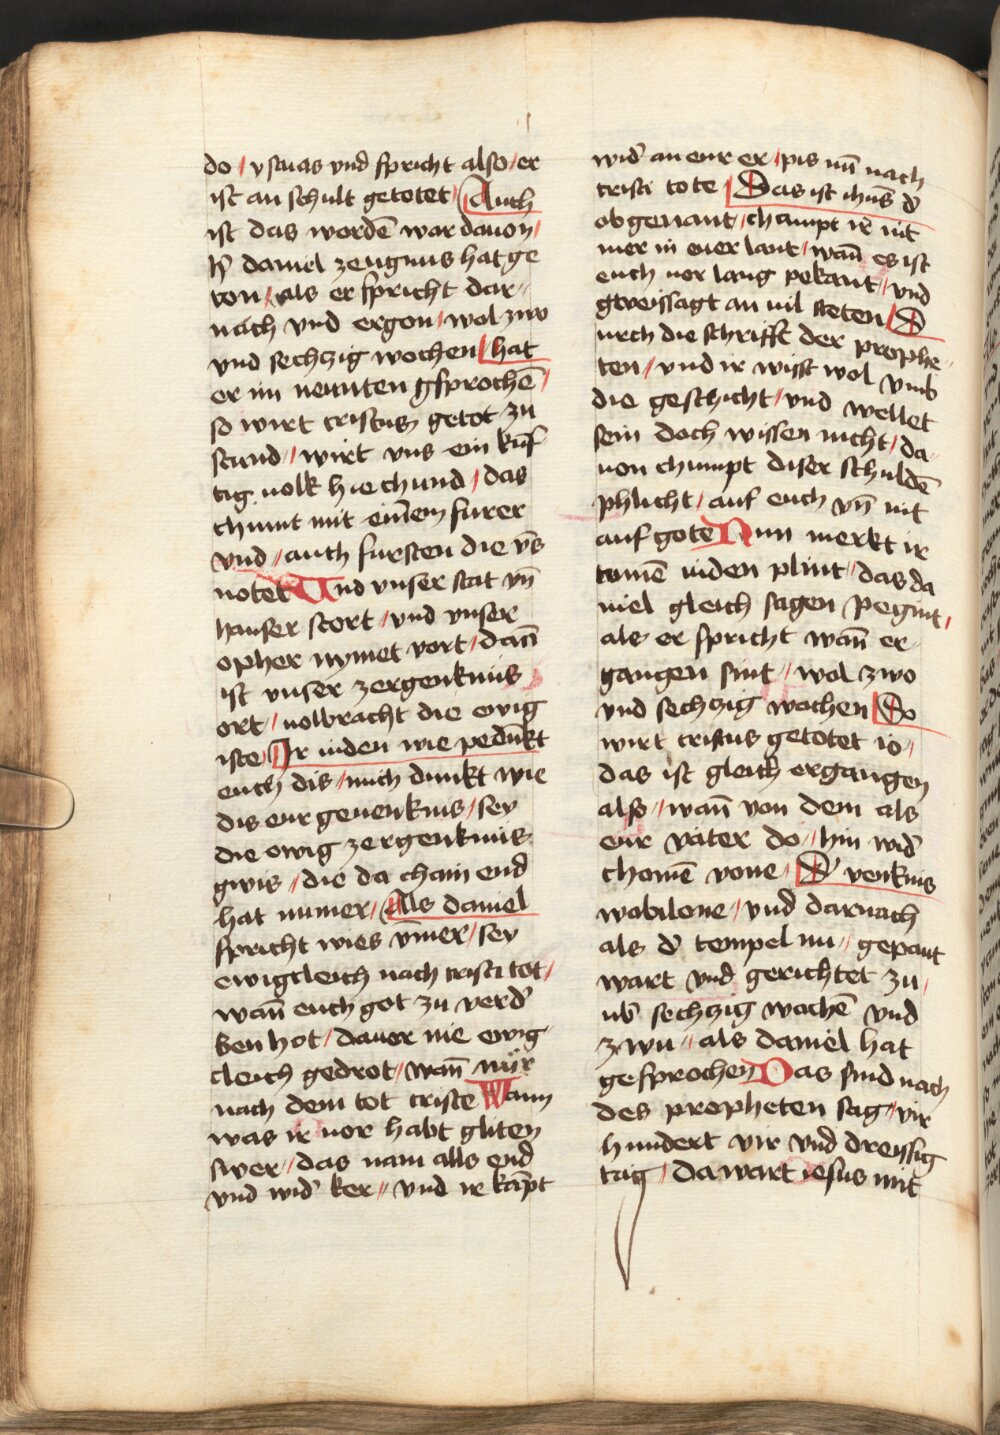 do / ysaias vnd spricht also / er
ist an schult getotet / Auch
ist das wordē war dauon /
h̄ daniel zeugnus hat ge
ton / als er spricht dar-
nach vnd ergon / wol zwo
vnd sechzig wochen / hat
er im neunten gsprochē /
so wirt cristus getot zu
stund / wirt vns ein kūf
tig uolk hie chund / das
chumt mit einem furer
vnd / auch fursten die vn̄s
notet Vnd vnser stat vn̄
hauser stort / vnd vnser
opher nymet vort / dan̄
ist vnser zergenknus
ort / uolbracht die ewig
iste / Ir iuden wie pedunkt
euch dis / mich dunkt wie
dis eur geuenknis / sey
die ewig zergenknus
gwis / die da chain end
hat numer / Als daniel
spricht wies ym̄er / sey
ewigtleich nach cristi tot /
wan̄ euch got zu verd̓
ben hot / dauor nie ewig
cleich gedrot / wan̄ nür
nach dem tot criste Wann
was ir uor habt gliten
swer / das nam alls end
vnd wid̓ ker / vnd ir kāpt
wid̓ an eur er / pis nū nach
cristi tote / Das ist ihūs d̓
obgenant / chumpt ir nit
mer in euer lant / wan̄ es ist
euch uor lang pekant / vnd
geweissagt an uil steten / D
urch die schrifft der prophe-
ten / vnd ir wisst wol vmb
die geschicht / vnd wellet
sein doch wissen nicht / da-
uon chumpt diser schuldē
phlicht / auf euch vn̄ nit
auf gote Nun merkt ir
tumē iuden plint / das da
niel gleich sagen pegint /
als er spricht wan̄ er-
gangen sint / wol zwo
vnd sechzig wochen / So
wirt cristus getotet io /
das ist gleich ergangen
also / wan̄ von dem als
eur vater do / hin wid̓
chomē vone / D̓ venknis
wabilone / vnd darnach
als d̓ tempel nu / gepaut
wart vnd gerichtet zu /
ub̓ sechzig wochē vnd
zwu / als daniel hat
gesprochen Das sind nach
des propheten sag / vir
hundert vir vnd dreissig
tag / da wart iesus mit